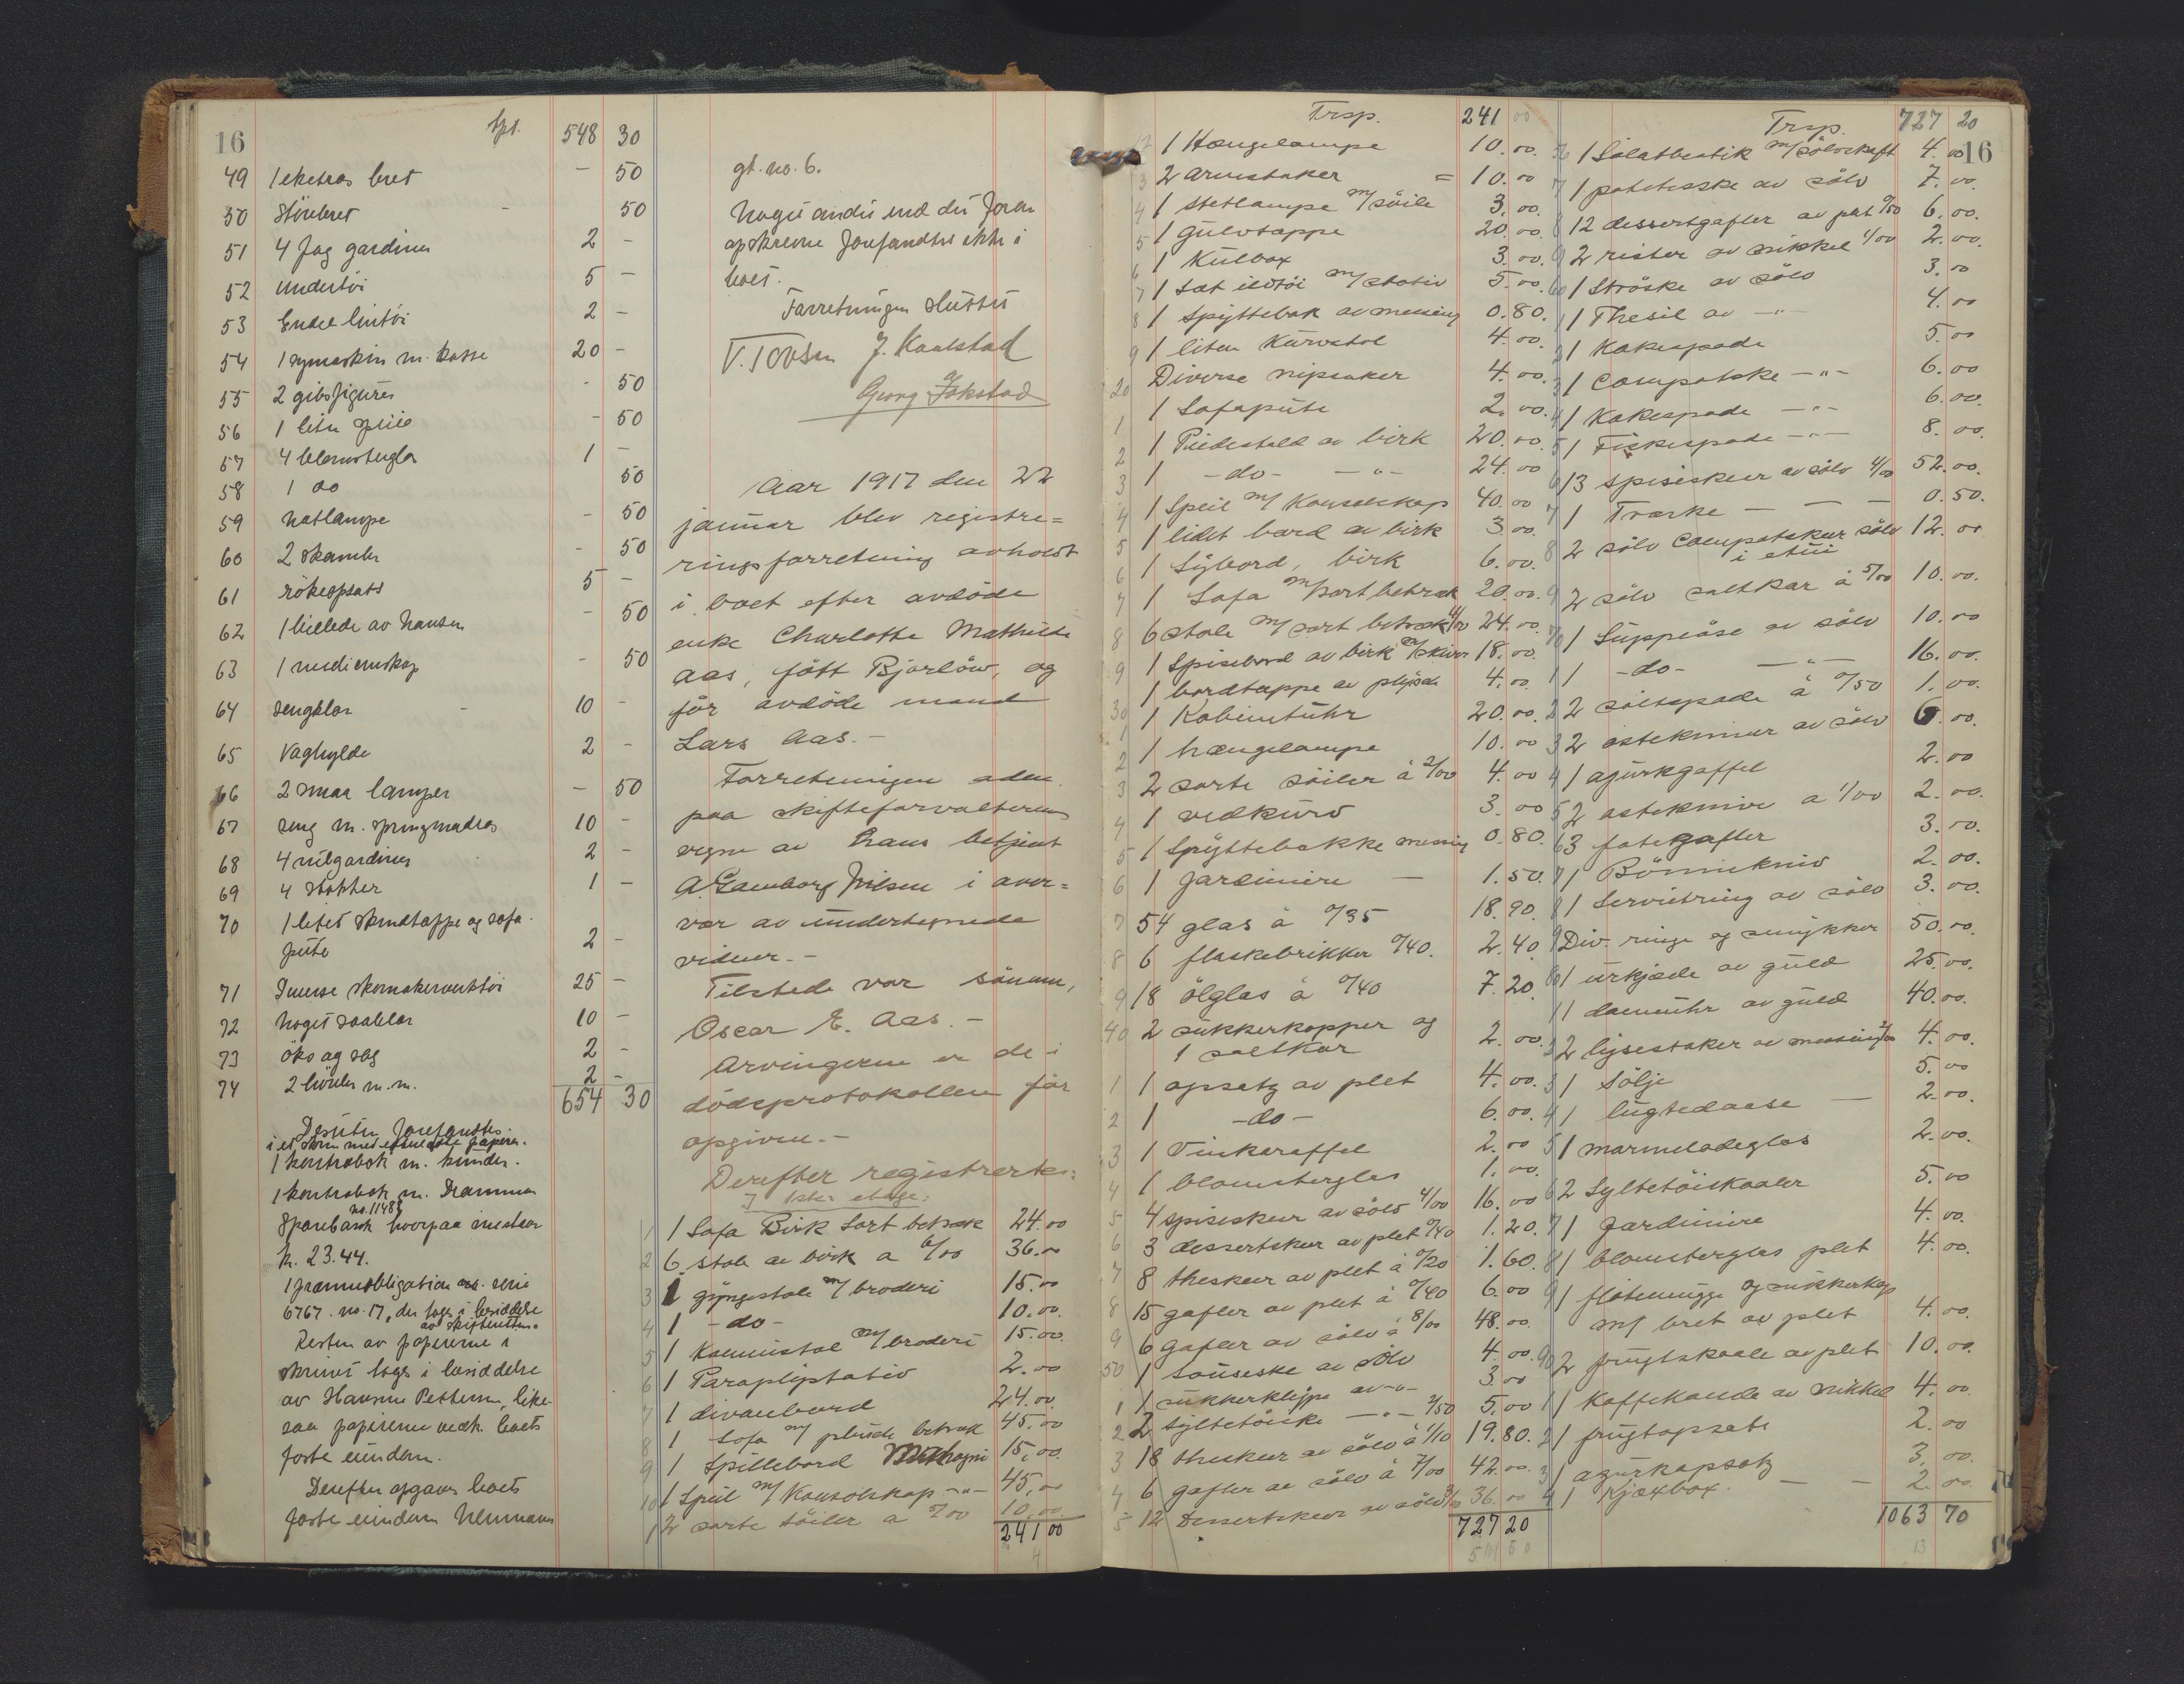 16
Tpt. 548 30
49 1 ekstra bret - 50
50 Störebret - 50
51 4 fag gardiner 2 -
52 Undertöi 5 -
53 Endel lintöi 2 -
54 1 symaskin m. kasse 20 -
55 2 gibsfigurer - 50
56 1 liten speile - 50
57 4 blomsterglas 1 -
58 1 do 50
59 Natlampe - 50
60 2 Skamler - 50
61 rökeopsats 5 -
62 1 billede av Nansen - 50
63 1 medicinskap - 50
64 sengklær - 10 -
65 Væghylde 2 -
66 2 smaa lamper - 50
67 seng m. springmadras 10 -
68 4 rulgardiner 2 -
69 4 Stokker 1 -
70 1 litet skindtæppe og sofa-
pute 2 -
71 Diverse skomakerverktöi 25 -
72 Noget saalelær 10 -
73 öks og sag 2 -
74 2 hövler m.m. 2 -
654 30
Desuten forefandtes
i et skrin med endel papirer.
1 kontrabok m. kunder.
1 kontrabok m. Drammens
no. 11489
Sparebank hvorpaa indestaar
kr. 23.44.
1 præmieobligation serie
6767. no. 17, der toges i besiddelse
av skifteretten.
Resten av papirerne i
skrinet toges i besiddelse
av Hansine Pettersen, like-
saa papirerne vedk. boets
faste eiendom.
Derefter opgaves boets
faste eiendom
gt. no. 6.
Noget andet end det foran
opskrevne forefandtes ikke i
boet.
Forretningen sluttet
J. Kaalstad
Georg Fokstad
Aar 1917 den 22
januar blev registre=
ringsforretning avholdt
i boet efter avdöde
enke Charlotte Mathilde
Aas, född Bjorlöw, og
för avdöde mand
Lars Aas.-
Forretningen adm.
paa skifteforvalterens
vegne av hans betjent
A. Gamborg Nilsen i over=
vær av undertegnede
vidner.-
Tilstede var sönnen,
Oscar E. Aas.-
Arvingerne er de i
dödsprotokollen för
opgivne.-
Derefter registrertes:
I 1ste etage:
1 1 Sofa Birk sort betræk 24.00
2 6 stole av birk a 6/00 36.00
3 1 gyngestol m/ broderi 15.00
4 1 -do- 10.00.
5 1 Kaministol m/ broderi 15.00.
6 1 Paraplystativ 2.00
7 1 divanbord 24.00.
8 1 Sofa m/ plüsch betræk 45.00
9 1 Spillebord Mahogni 15,00.
10 1 Speil m/ Konsolskap -"- 45,00
1 2 sorte söiler a 5/00 10.00.
241 00
Trsp. 241 00
12 1 Hængelampe 10.00.
3 2 armstaker = 10.00
4 1 stetlampe m/ söile 3.00.
5 1 gulvtæppe 20.00.
6 1 Kulbox 3.00.
7 1 Sæt ildtöi m/ stativ 5.00.
8 1 Spyttebak av messing 0.80.
9 1 liten Kurvstol 4.00.
20 Diverse nipsaker 4.00.
1 1 Sofapute 2.00.
2 1 Piedestald av birk 20.00.
3 1 -do- -"- 24.00
4 1 Speil m/ Konsolskap 40.00
5 1 lidet bord av birk 3.00.
6 1 Sybord, birk 6.00.
7 1 Sofa m/ sort betræk 20.00.
8 6 stole m/ sort betræk 4/00 24.00.
9 1 Spisebord av birk m/ skiver 18.00.
30 1 bordtæppe av plysch 4.00.
1 1 Kabinetuhr 20.00.
2 1 hængelampe 10.00
3 2 sorte söiler á 2/00 4.00
4 1 vedkurv 3.00
5 1 Spyttebakke messing 0.80.
6 1 Jardiniere - 1.50.
7 54 glas á 0/35 18.90.
8 6 flaskebrikker 0/40. 2.40.
9 18 ölglas á 0/40 7.20.
40 2 sukkerkopper og
1 saltkar 2.00.
1 1 opsatz av plet 4.00.
2 1 -do- 6.00.
3 1 Vinkaraffel 2.00
4 1 blomsterglas 1.00.
5 4 spiseskeer av sölv 4/00 16.00
6 3 dessertskeer av plet 0/40 1.20.
7 8 theskeer av plet á 0/20 1.60.
8 15 gafler av plet á 0/40 6.00
9 6 gafler av sölv á 8/00 48.00.
50 1 Sauseske av sölv 4.00.
1 1 sukkerklype av -"- 3.00
2 2 Syltetöiske -"- 2/50 5.00
3 18 theskeer av sölv á 1/10 19.80.
4 6 gafler av sölv á 7/00 42.00.
5 12 Dessertskeer av sölv 3/00 36.00
727 20
Trsp. 727 20
16
56 1 Salatbestik m/ sölvskaft 4.00
7 1 potetesske av sölv 7.00.
8 12 dessertgafler av plet 0/50 6.00.
9 2 rister av nikkel 1/00 2.00.
60 1 Ströske av sölv 3.00
1 1 Thesil av -"- 4.00
2 1 Kakespade 5.00
3 1 Compotske -"- 6.00
4 1 Kakespade -"- 6.00.
5 1 Fiskespade -"- 8.00.
6 13 spiseskeer av sölv 4/00 52.00.
7 1 Træske - - - 0.50.
8 2 sölv Compotskeer sölv 12.00
i etui
9 2 sölv saltkar á 5/00 10.00.
70 1 Suppeöse av sölv 10.00
1 1 -do- -"- 16.00.
2 2 saltspade á 0/50 1.00.
3 2 osteknive av sölv 6.00.
4 1 agurkgaffel 2.00
5 2 osteknive a 1/00 2.00.
6 3 fategafler 3.00.
7 1 Börnekniv 2.00.
8 1 Serviètring av sölv 3.00.
9 Div. ringe og smykker 50.00.
80 1 urkjæde av guld 25.00.
1 1 dameuhr av guld 40.00.
2 2 lysestaker av messing 2/00 4.00.
3 1 Sölje 5.00
4 1 lugtedaase - 2.00.
5 1 marmeladeglas 2.00.
6 2 Syltetöiskaaler 5.00
7 1 Jardiniere 4.00.
8 1 blomsterglas plet 4.00.
9 1 flötemugge og sukkerkop
m/ bret av plet 4.00.
90 2 frugtskaale av plet 10.00.
1 1 Kaffekande av nikkel 4.00.
2 1 frugtopsats 2.00
3 1 agurkopsatz 3.00.
4 1 Kjæxbox. - - 2.00.
1063 70